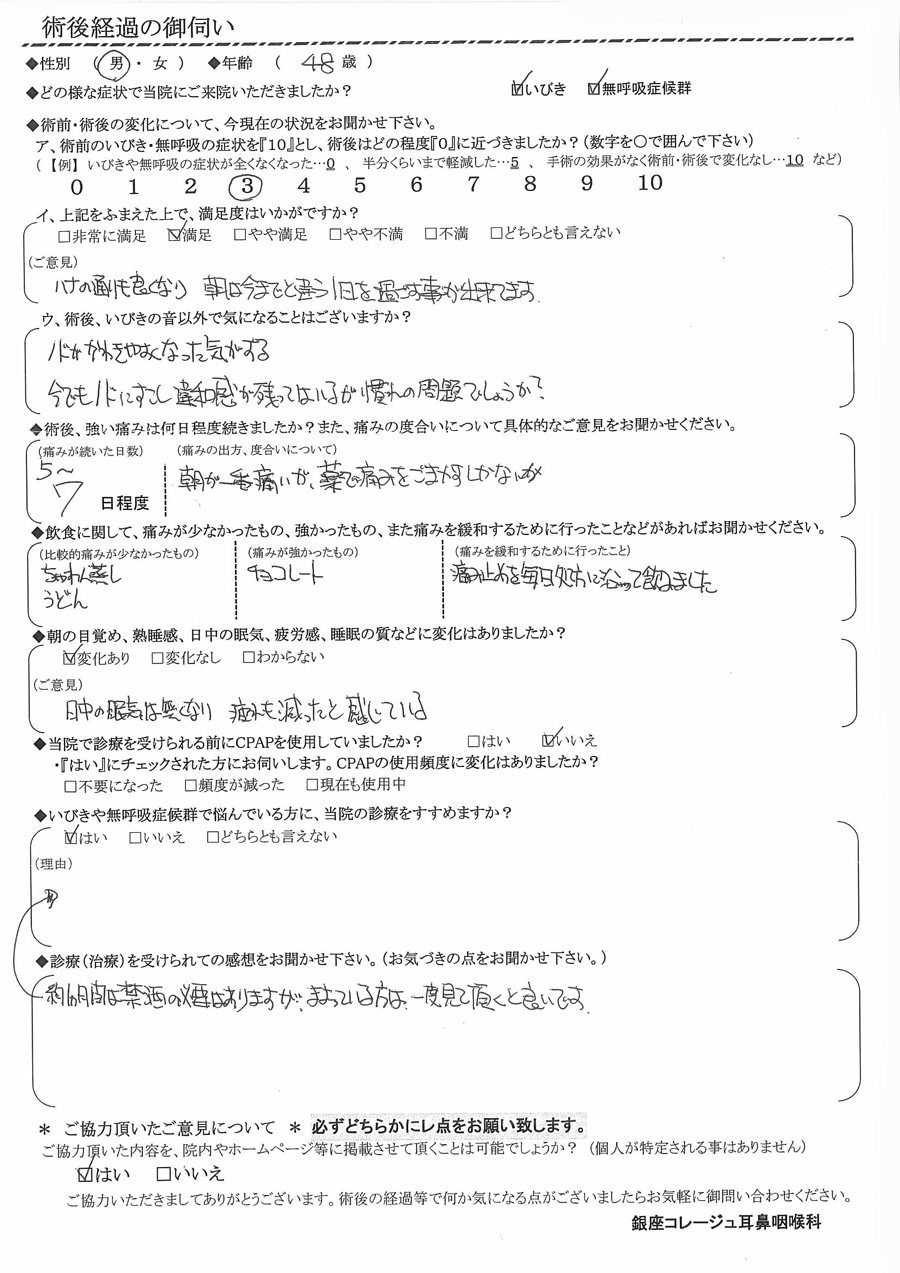 術後経過の御伺い
◆性別 ( 男 ・ 女 ) ◆年齢 ( 48 歳 )
◆どの様な症状で当院にご来院いただきましたか? ☑いびき ☑無呼吸症候群
◆術前・術後の変化について、今現在の状況をお聞かせ下さい。
ア、術前のいびき・無呼吸の症状を『10』とし、術後はどの程度『0』に近づきましたか?(数字を〇で囲んで下さい)
(【例】いびきや無呼吸の症状が全くなくなった…0 、 半分くらいまで軽減した…5 、 手術の効果がなく術前・術後で変化なし…10 など)
0 1 2 3 4 5 6 7 8 9 10
イ、上記をふまえた上で、満足度はいかがですか?
□非常に満足 ☑満足 □やや満足 □やや不満 □不満 □どちらとも言えない
(ご意見)
ハナの通りも良くなり 朝は今までと違う1日を過ごす事が出来てます.
ウ、術後、いびきの音以外で気になることはございますか?
ノドがかわきやすくなった気がする
今でもノドにすこし違和感が残ってはいるが慣れの問題でしょうか?
◆術後、強い痛みは何日程度続きましたか?また、痛みの度合いについて具体的なご意見をお聞かせください。
(痛みが続いた日数) (痛みの出方、度合いについて)
5〜
7 日程度
朝が一番痛いが、薬で痛みをごまかすしかないが
◆飲食に関して、痛みが少なかったもの、強かったもの、また痛みを緩和するために行ったことなどがあればお聞かせください。
(比較的痛みが少なかったもの) (痛みが強かったもの) (痛みを緩和するために行ったこと)
ちゃわん蒸し チョコレート 痛み止めを毎日処方に沿って飲みました
うどん
◆朝の目覚め、熟睡感、日中の眠気、疲労感、睡眠の質などに変化はありましたか?
☑変化あり □変化なし □わからない
(ご意見)
日中の眠気は無くなり 疲れも減ったと感じている
◆当院で診療を受けられる前にCPAPを使用していましたか? □はい ☑いいえ
・『はい』にチェックされた方にお伺いします。CPAPの使用頻度に変化はありましたか?
□不要になった □頻度が減った □現在も使用中
◆いびきや無呼吸症候群で悩んでいる方に、当院の診療をすすめますか?
☑はい □いいえ □どちらとも言えない
(理由)
◆診療(治療)を受けられての感想をお聞かせ下さい。(お気づきの点をお聞かせ下さい。)
約1ヶ月間は禁酒の煙はありますが、まよっている方は、一度見て頂くと良いです.
＊ ご協力頂いたご意見について ＊ 必ずどちらかにレ点をお願い致します。
ご協力頂いた内容を、院内やホームページ等に掲載させて頂くことは可能でしょうか? (個人が特定される事はありません)
☑はい □いいえ
ご協力いただきましてありがとうございます。術後の経過等で何か気になる点がございましたらお気軽に御問い合わせください。
銀座コレージュ耳鼻咽喉科